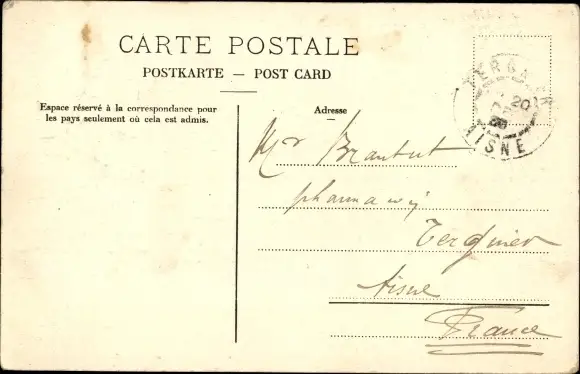 CARTE POSTALE
POSTKARTE — POST CARD
Espace réservé à la correspondance pour
les pays seulement où cela est admis.
Adresse
TERGNIER
20
AISNE
Mr
Tergnier
Aisne
France